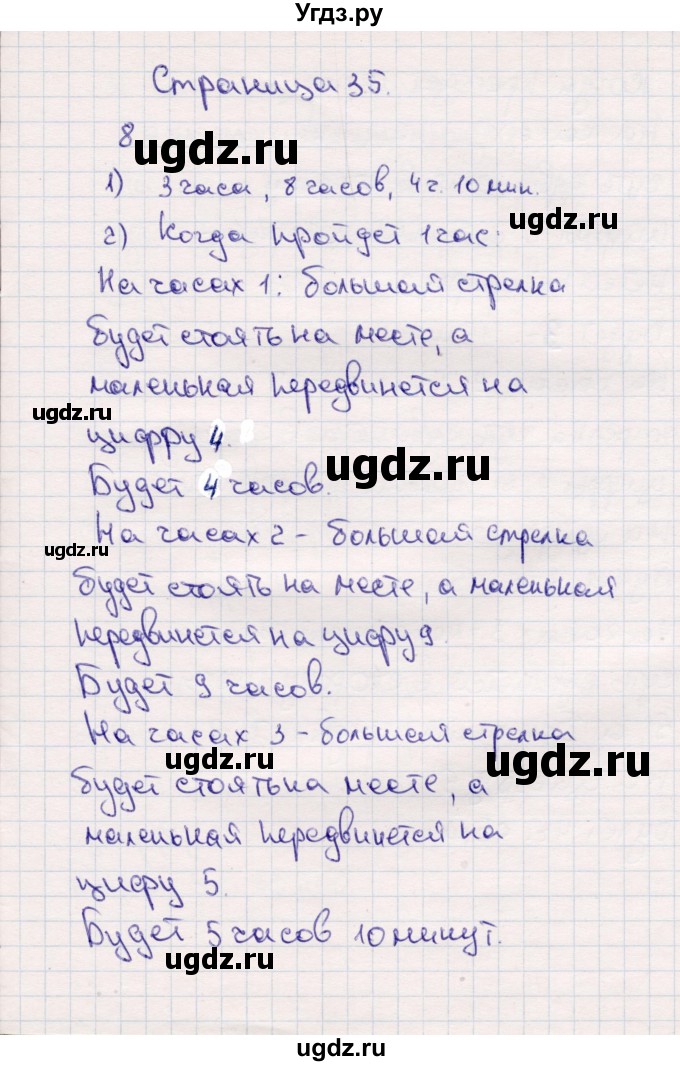 Угдз.ру
Страница 35.
8
ugdz.ru
1) 3 часа, 8 часов, 4 г. 10 мин.
ugdz.ru
2) Когда пройдет 1 час:
На часах 1: большая стрелка
будет стоять на месте, а
маленькая передвинется на
ugdz.ru
цифру 4.
ugdz.ru
Будет 4 часов.
На часах 2 - большая стрелка
ugdz.ru
будет стоять на месте, а маленькая
передвинется на цифру 9.
Будет 9 часов.
На часах 3 - большая стрелка
ugdz.ru
ugdz.ru
будет стоять на месте, а
маленькая передвинется на
цифру 5.
Будет 5 часов 10 минут.
ugdz.ru
ugdz.ru